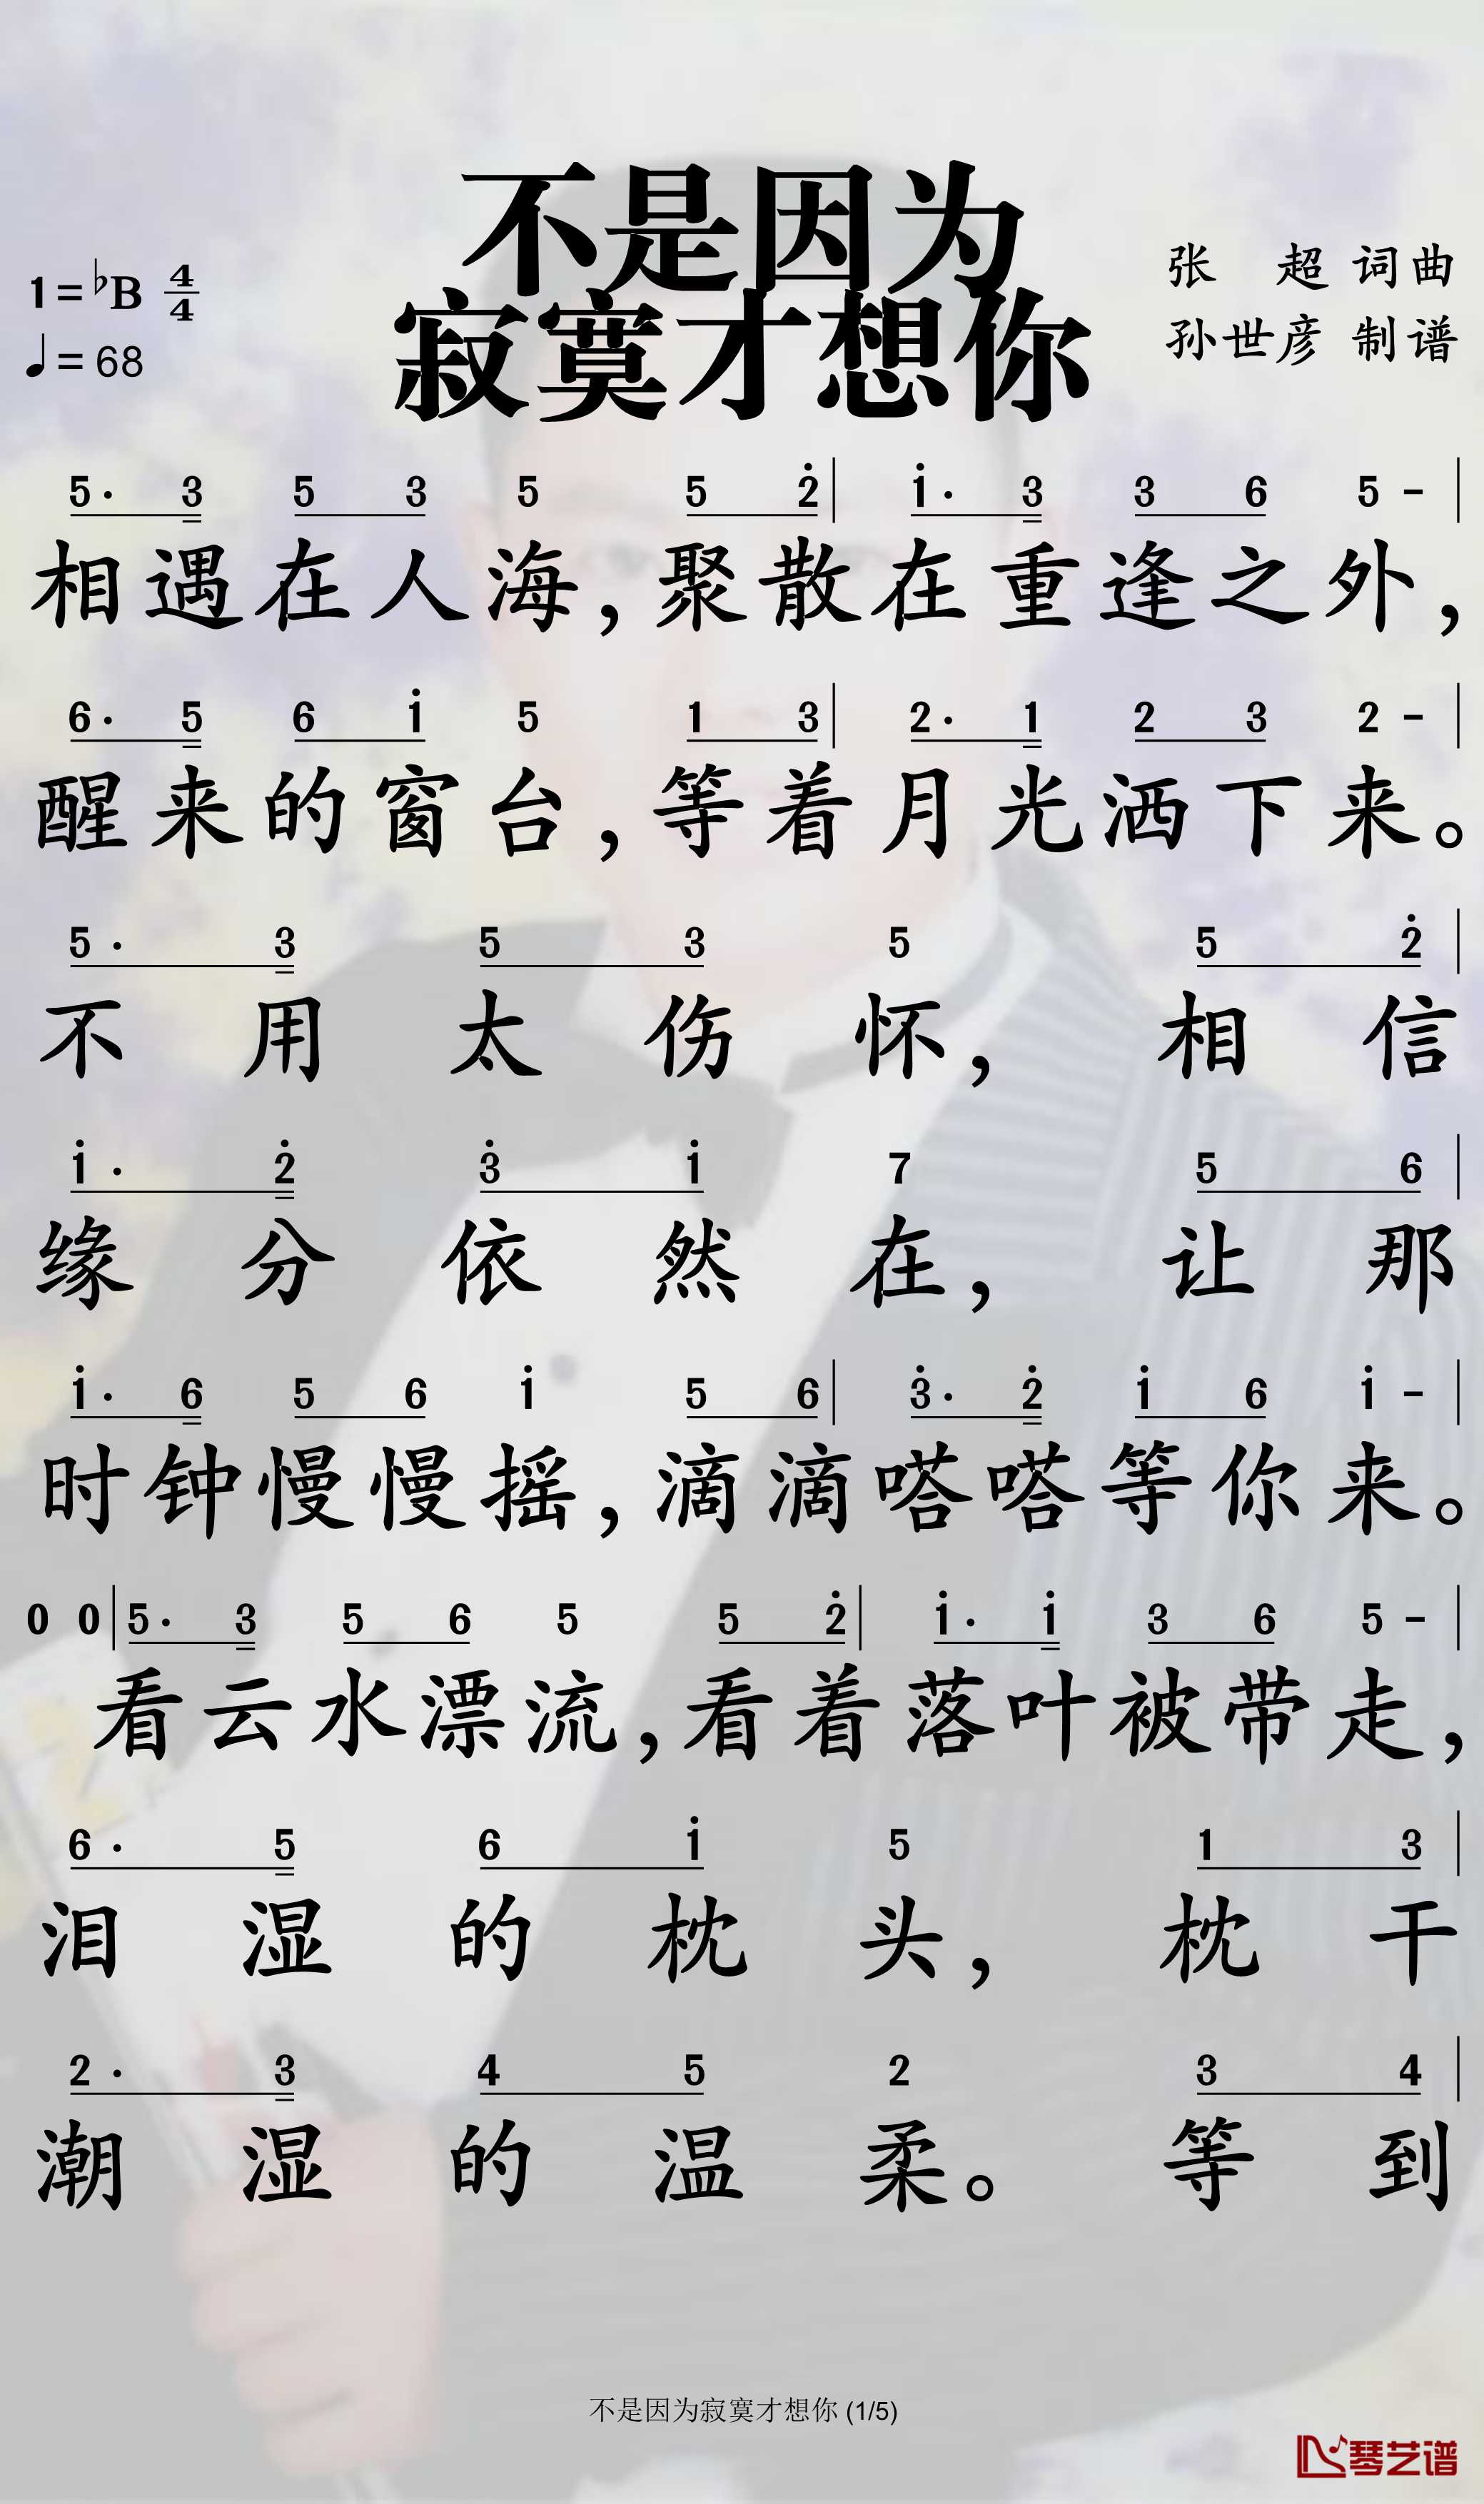 不是因为
寂寞才想你
1=♭B 4/4
♩=68
张 超 词曲
孙世彦 制谱
5· 3 5 3 5 5 2̇ | 1̇· 3 3 6 5 - |
相遇在人海，聚散在重逢之外，
6· 5 6 1̇ 5 1 3 | 2· 1 2 3 2 - |
醒来的窗台，等着月光洒下来。
5· 3 5 3 5 5 2̇ |
不用太伤怀，相信
1̇· 2̇ 3̇ 1̇ 7 5 6 |
缘分依然在，让那
1̇· 6 5 6 1̇ 5 6 | 3̇· 2̇ 1̇ 6 1̇ - |
时钟慢慢摇，滴滴嗒嗒等你来。
0 0 | 5· 3 5 6 5 5 2̇ | 1̇· 1̇ 3 6 5 - |
看云水漂流，看着落叶被带走，
6· 5 6 1̇ 5 1 3 |
泪湿的枕头，枕干
2· 3 4 5 2 3 4 |
潮湿的温柔。等到
不是因为寂寞才想你 (1/5)
琴艺谱